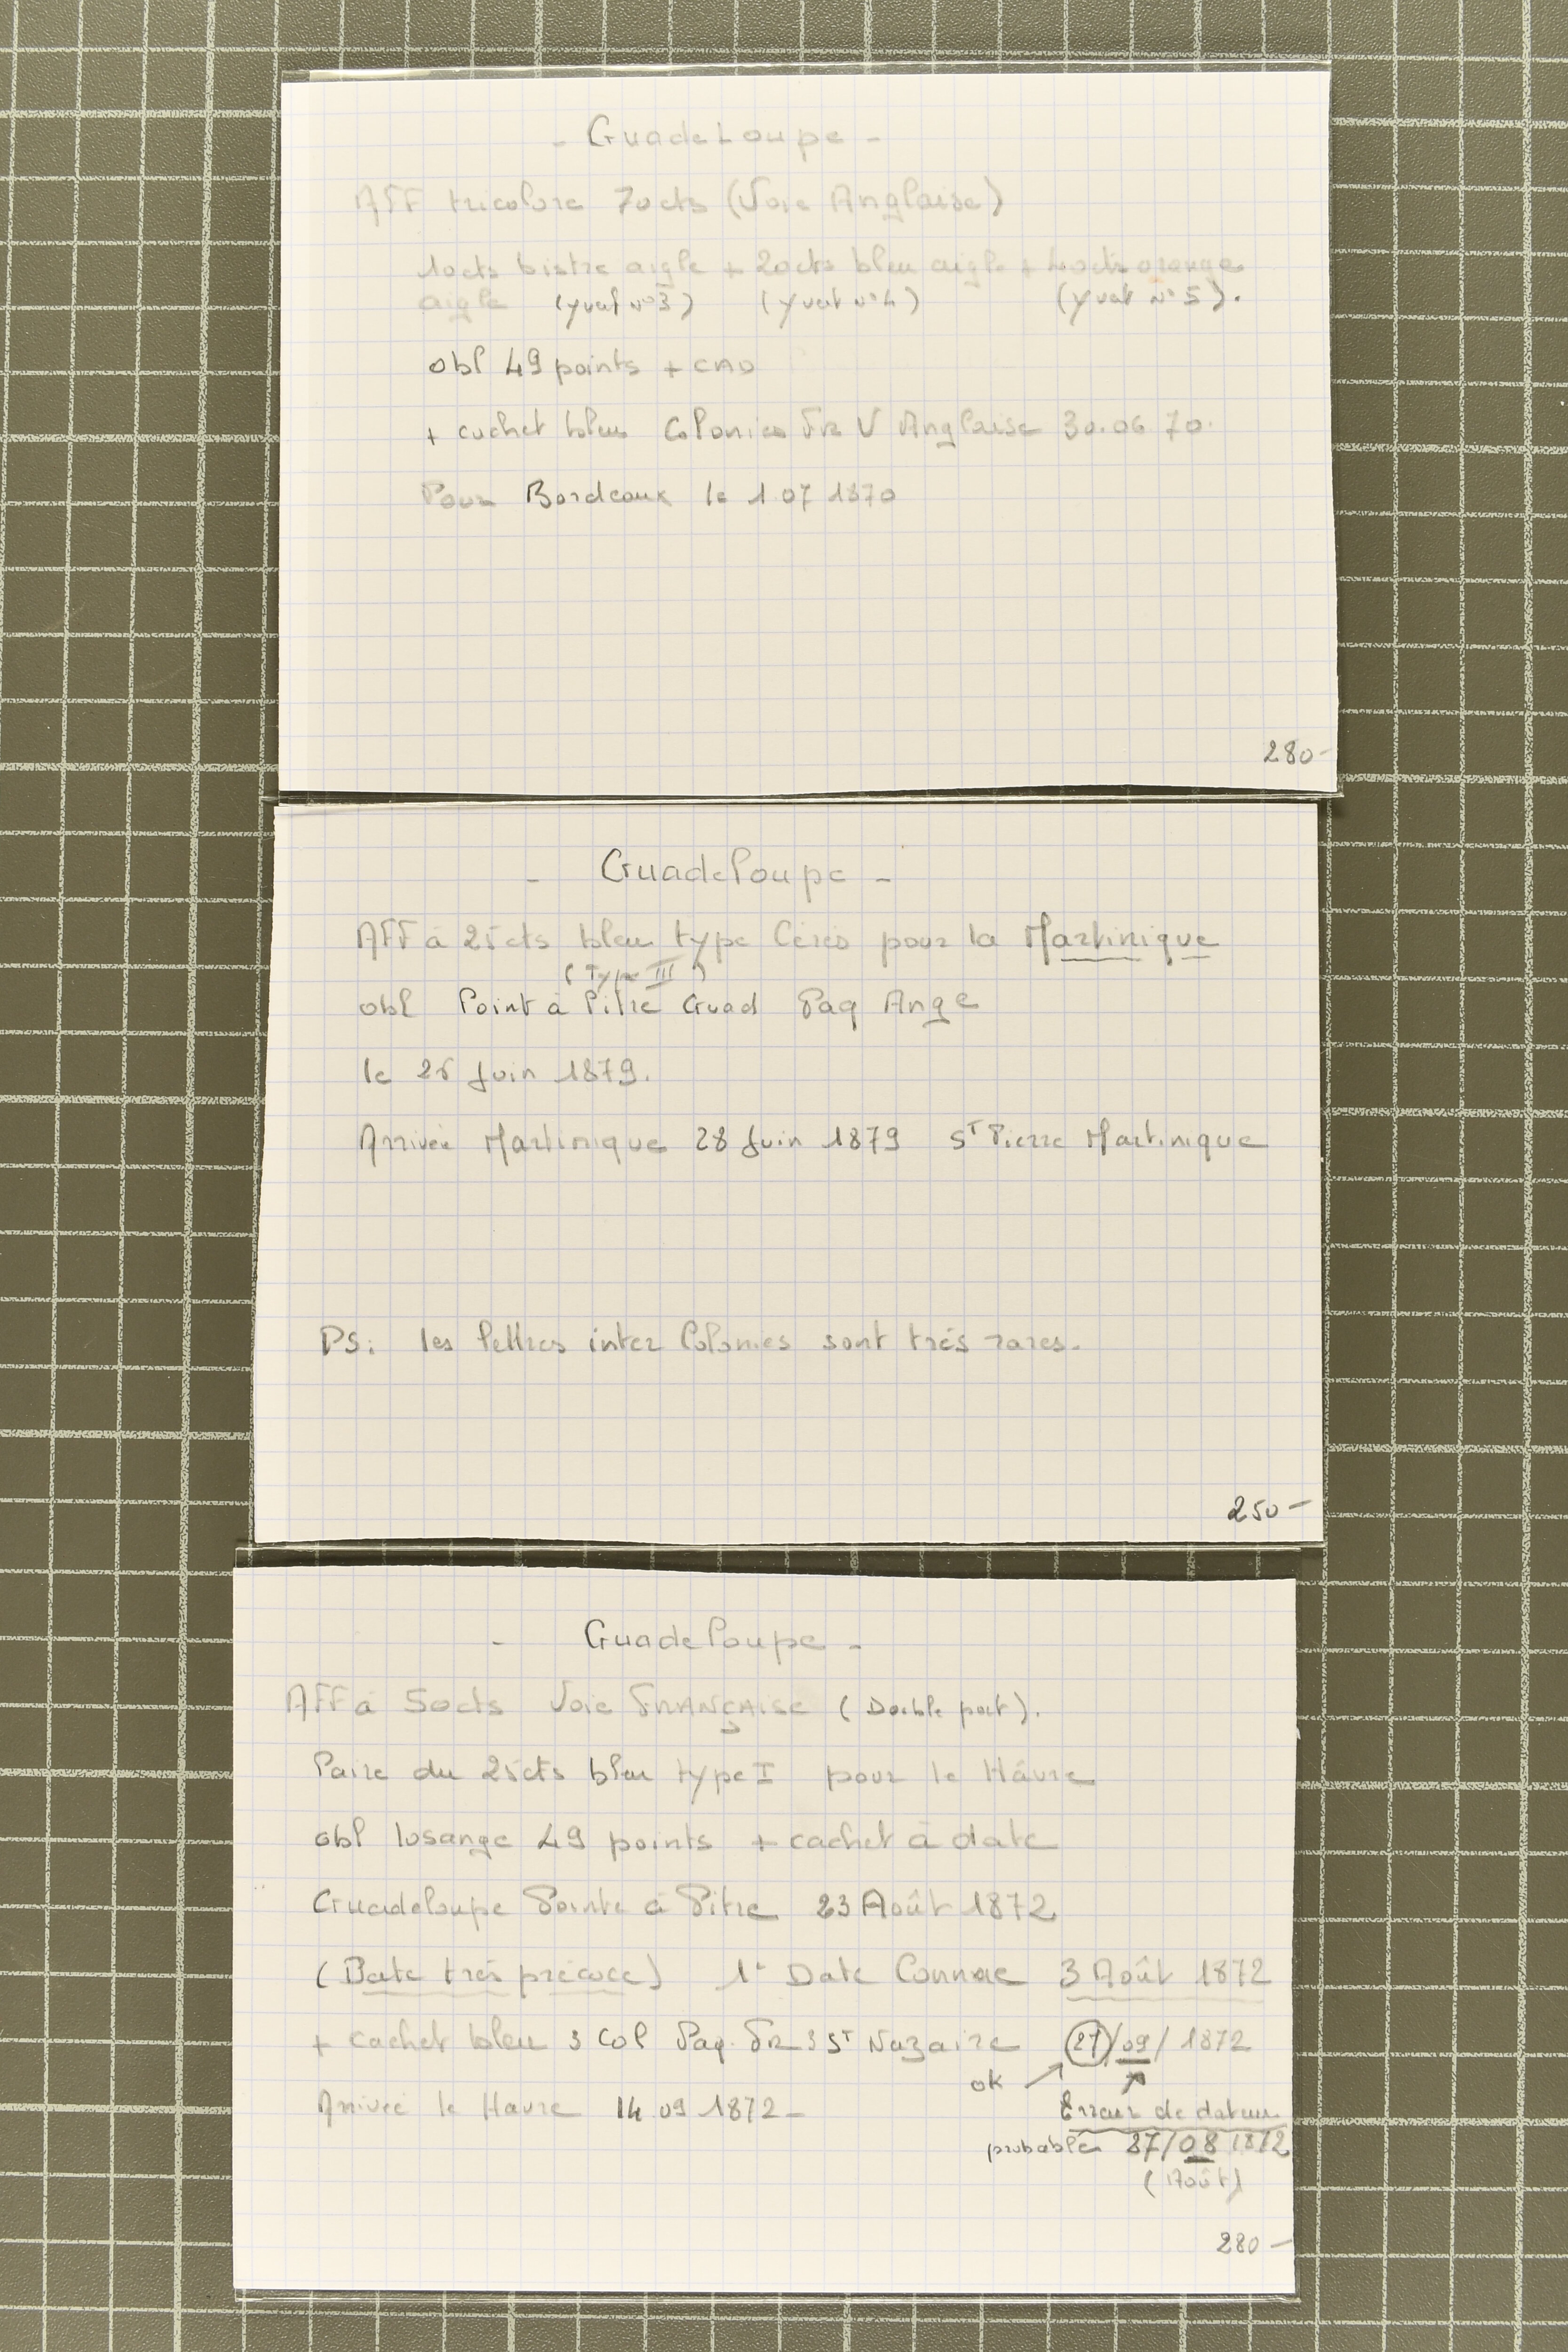 - Guadeloupe -
Aff tricolore 70cts (Voie Anglaise)
10cts bistre aigle + 20cts bleu aigle + 40cts orange
aigle (yvert n°3) (yvert n°4) (yvert n°5).
obl 49 points + CAD
+ cachet bleu Colonies Fr V Anglaise 30.06 70.
Pour Bordeaux le 1 07 1870
280-
- Guadeloupe -
Aff à 25cts bleu type Cérès pour la Martinique
(Type III)
obl Point à Pitre Guad Paq Ang
le 25 Juin 1879.
Arrivée Martinique 28 Juin 1879 ST Pierre Martinique
PS: les lettres inter Colonies sont très rares.
250-
- Guadeloupe -
Aff à 50cts Voie FRANÇAISE (Double port).
Paire du 25cts bleu type I pour le Hâvre
obl losange 49 points + cachet à date
Guadeloupe Pointe à Pitre 23 Août 1872
(Date très précoce) 1° Date Connue 3 Août 1872
+ cachet bleu 3 Col Paq. Fr 3 ST Nazaire 27/09/1872
ok
Arrivée le Havre 14 09 1872-
Erreur de dateur
probable 27/08 1872
(Août)
280-